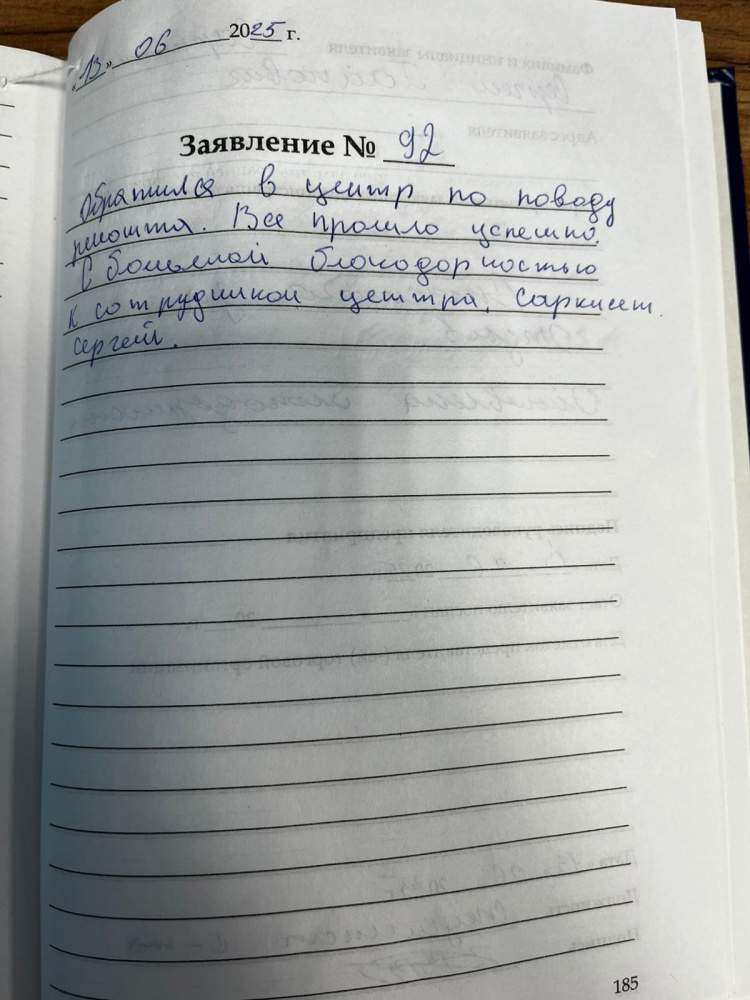 «13» 06 2025 г.
Заявление № 92
Обратился в центр по поводу
ремонта. Все прошло успешно.
С большой благодарностью
к сотрудникам центра, Саркисян
Сергей.
185